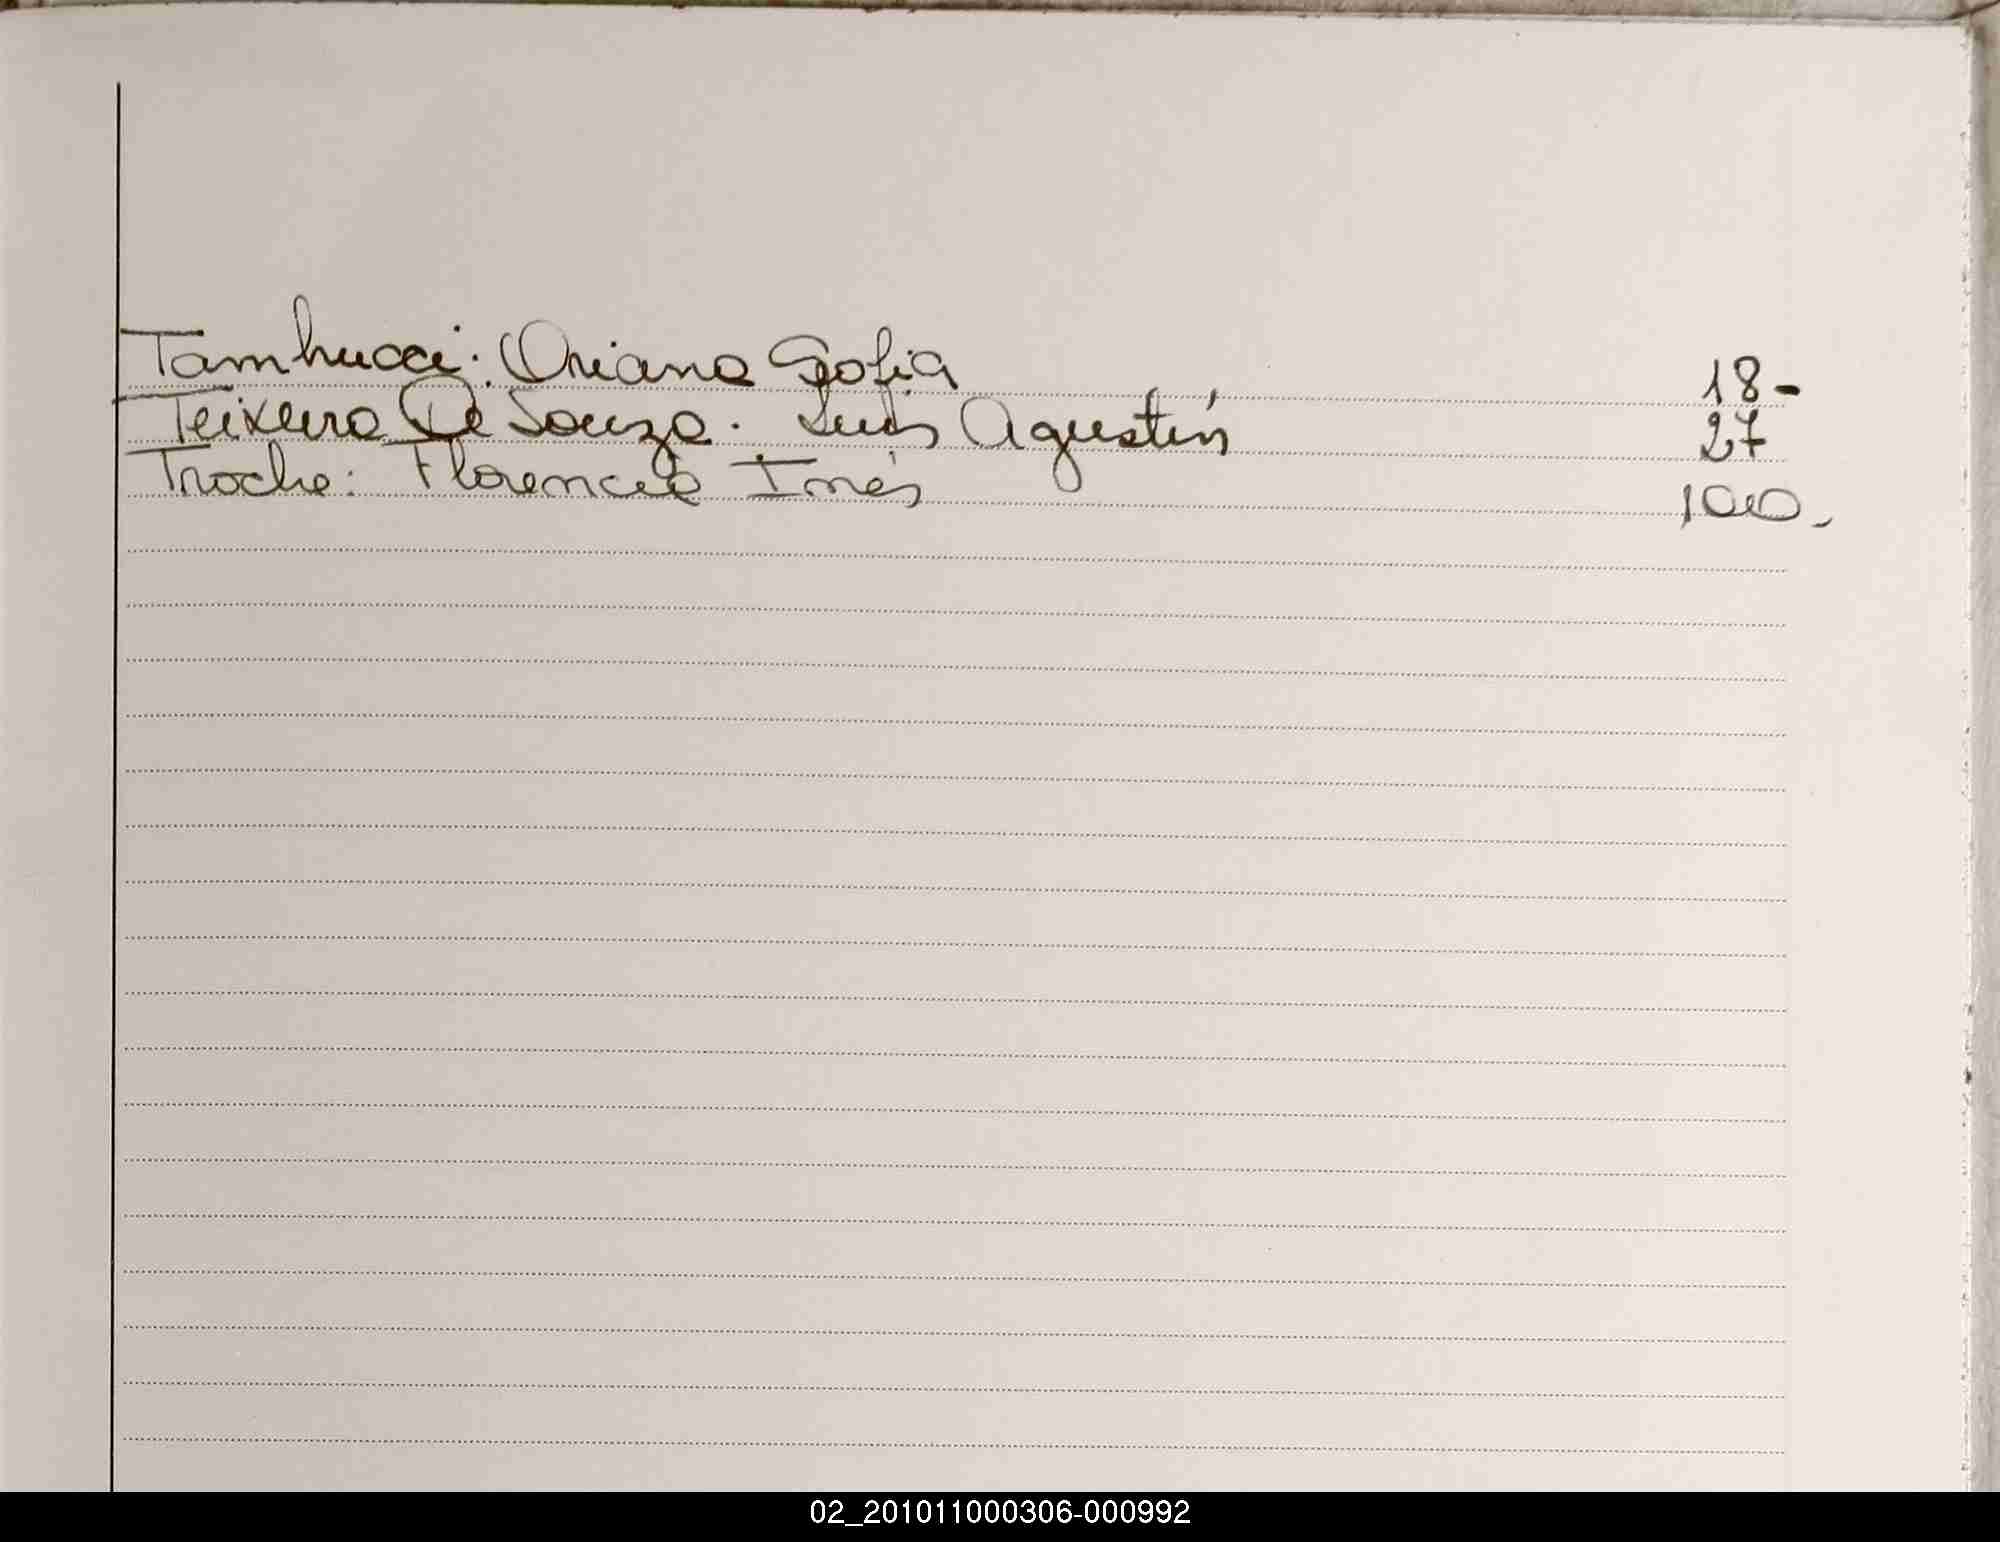 Tambucci: Oriana Sofia 18-
Teixeira De Souza. Luis Agustín 27
Troche: Florencia Inés 100.
02_201011000306-000992